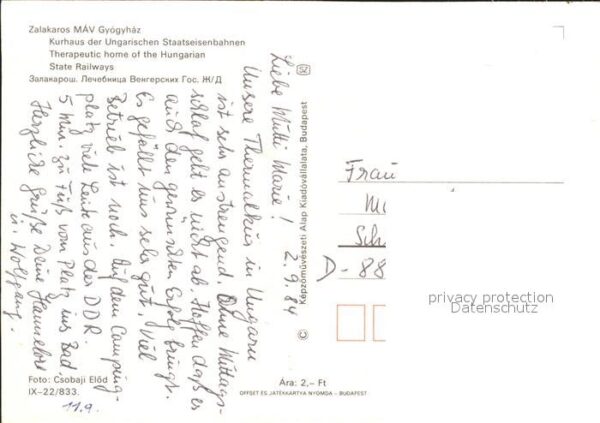 Zalakaros MÁV Gyógyház
Kurhaus der Ungarischen Staatseisenbahnen
Therapeutic home of the Hungarian
State Railways
Залакарош. Лечебница Венгерских Гос. Ж/Д
Liebe Mutti Marie! 2.9.84
Unsere Thermalkur in Ungarn
ist sehr anstrengend. Ohne Mittags-
schlaf geht es nicht ab. Hoffen daß es
auch den gewünschten Erfolg bringt.
Es gefällt uns sehr gut. Viel
Betrieb ist noch. Auf dem Camping-
platz viele Leute aus der DDR.
5 Min. zu Fuß vom Platz ins Bad.
Herzliche Grüße Deine Hannelore
u. Wolfgang.
Foto: Csobaji Előd
IX-22/833.
11.9.
© Képzőművészeti Alap Kiadóvállalata, Budapest
Ára: 2,- Ft
OFFSET ÉS JÁTÉKKÁRTYA NYOMDA - BUDAPEST
Frau
D-88
privacy protection
Datenschutz